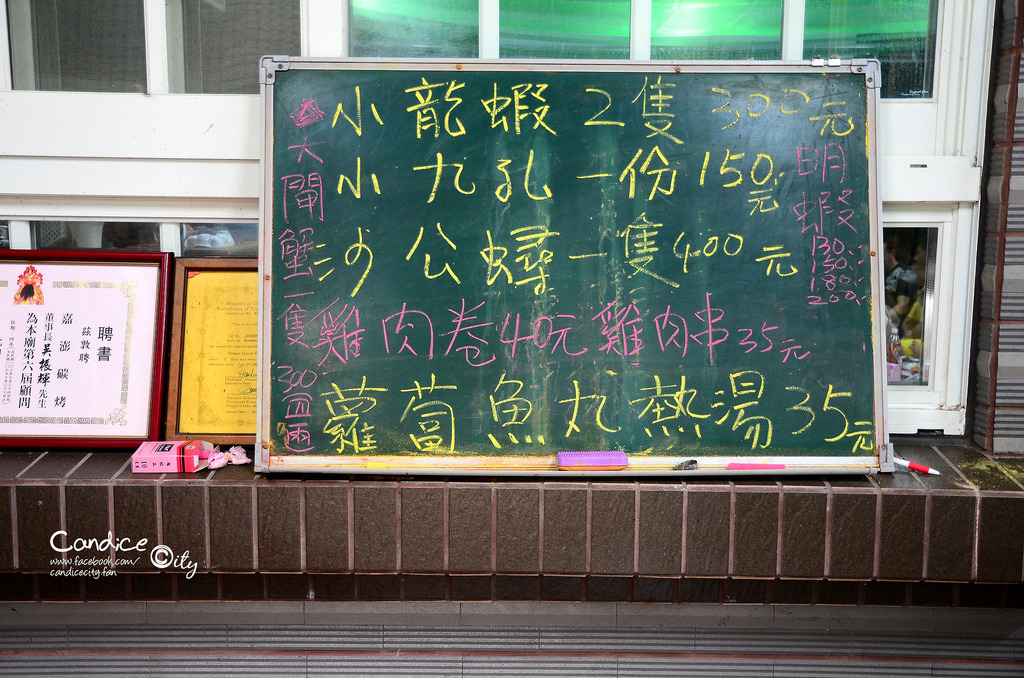 小龍蝦2隻 300元
小九孔一份150元
沙公蟳一隻400元
雞肉卷40元雞肉串35元
蘿蔔魚丸熱湯35元
大閘蟹一隻300
明蝦
130.
150.
180.
200.
聘書
茲敦聘
嘉澎碳烤
董事長吳振輝先生
為本廟第六屆顧問
Candice City
www.facebook.com/
candicecity.fan